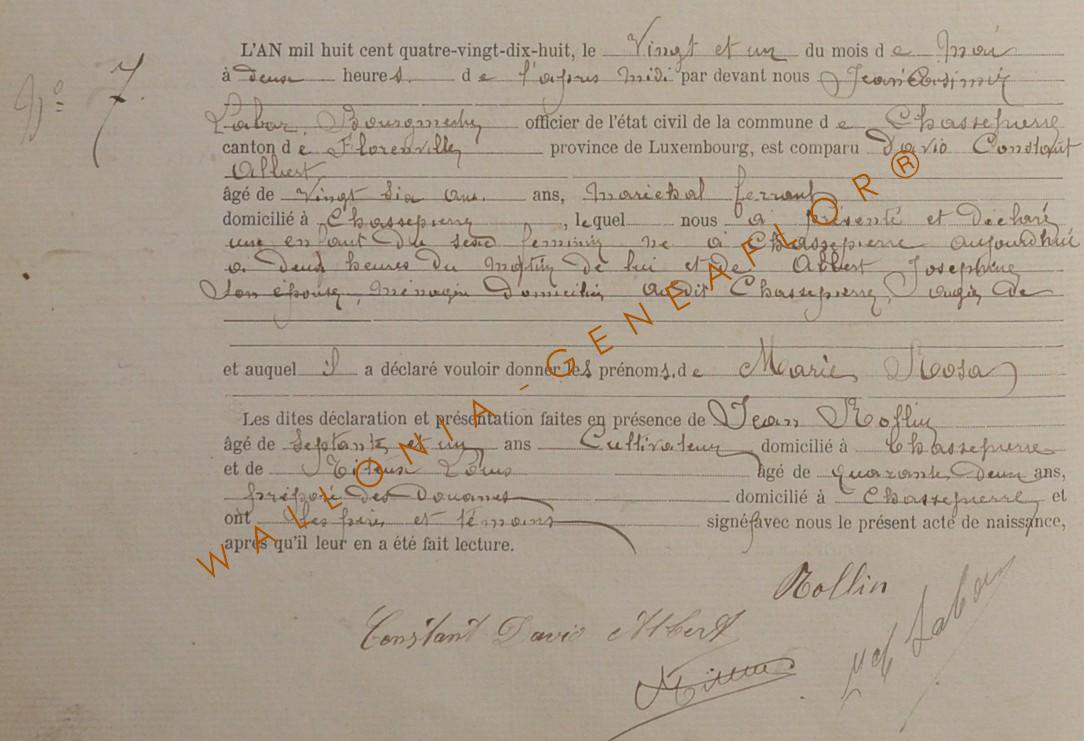 N° 7
L'AN mil huit cent quatre-vingt-dix-huit, le Vingt et un du mois de Mai
à deux heures. de l'apres midi par devant nous Jean Casimir
Labar, Bourgmestre officier de l'état civil de la commune de Chassepierre
canton de Florenville province de Luxembourg, est comparu David Constant
Albert,
âgé de Vingt six ans. ans, Maréchal ferrant
domicilié à Chassepierre, lequel nous a présenté et déclaré
une enfant du sexe feminin né à Chassepierre aujourdhui
a deux heures du matin de lui et de Albert Josephine
Son épouse, Ménagère domiciliée audit Chassepierre,
et auquel il a déclaré vouloir donner les prénoms, de Marie, Rosa
Les dites déclaration et présentation faites en présence de Jean Rollin
âgé de Septante et un ans Cultivateur domicilié à Chassepierre
et de Louis âgé de quarante deux ans,
préposé des Douanes domicilié à Chassepierre et
ont les père et témoins signé avec nous le présent acte de naissance,
après qu'il leur en a été fait lecture.
Rollin
Constant David Albert
Labar
WALLONIA-GENEAFLOR®